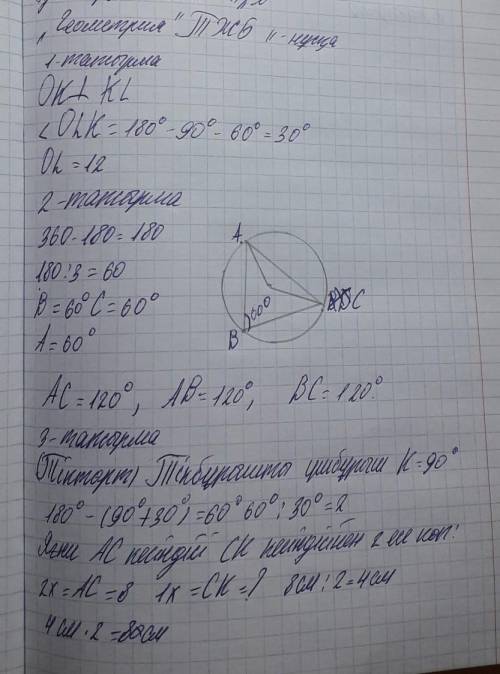 „Геометрия" ТЖБ „-нұсқа
1-тапсырма
OK⊥ KL
<OLK = 180° - 90° - 60° = 30°
OL = 12
2-тапсырма
360-180=180
180:3=60
B=60° C=60°
A=60°
A
60°
B
C
AC=120°, AB=120°, BC=120°.
3-тапсырма
Тікбұрышты үшбұрыш K=90°
180°-(90°+30°)=60° 60°:30°=2
Яғни AC кесіндісі CK кесіндісінен 2 есе көп:
2x=AC=8 1x=CK=? 8см:2=4см
4см·2=8см